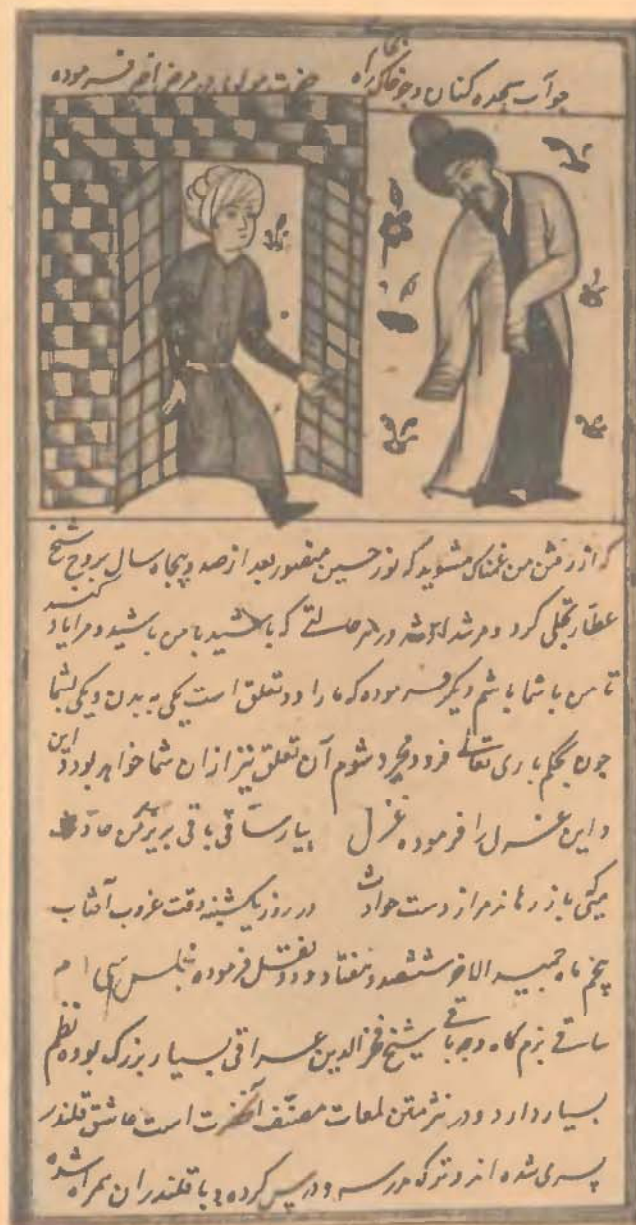 جو آب سجده کنان و جو خاک راه
حضرت مولوی در مرض آخر فرموده
که از رفتن من غمناک مشوید که نور حسین منصور بعد از صد و پنجاه سال بروح شیخ
عطار تجلی کرد و مرشد او شد در هر حالتی که باشید با من باشید و مرا یاد کنید
تا من با شما باشم و دیگر فرموده که ما را دو تعلق است یکی به بدن و یکی بشما
جون بحکم باری تعالی فرد و مجرد شوم آن تعلق نیز از ان شما خواهد بود
و این غزل را فرموده غزل بیار ساقی باقی
میکنی باز رهانم از دست حوادث در روز یکشنبه وقت غروب آفتاب
پنجم ماه جمید الاخر ششصد و هفتاد و دو نقل فرموده مجلس سی ام
ساقی بزم کاه وجه باقی شیخ فخرالدین عراقی بسیار بزرک بوده نظم
بسیار دارد و در نثر متن لمعات مصنف آنحضرت است عاشق قلندر
پسری شده اند و ترک مدرسه و درس کرده و با قلندران همراه شده